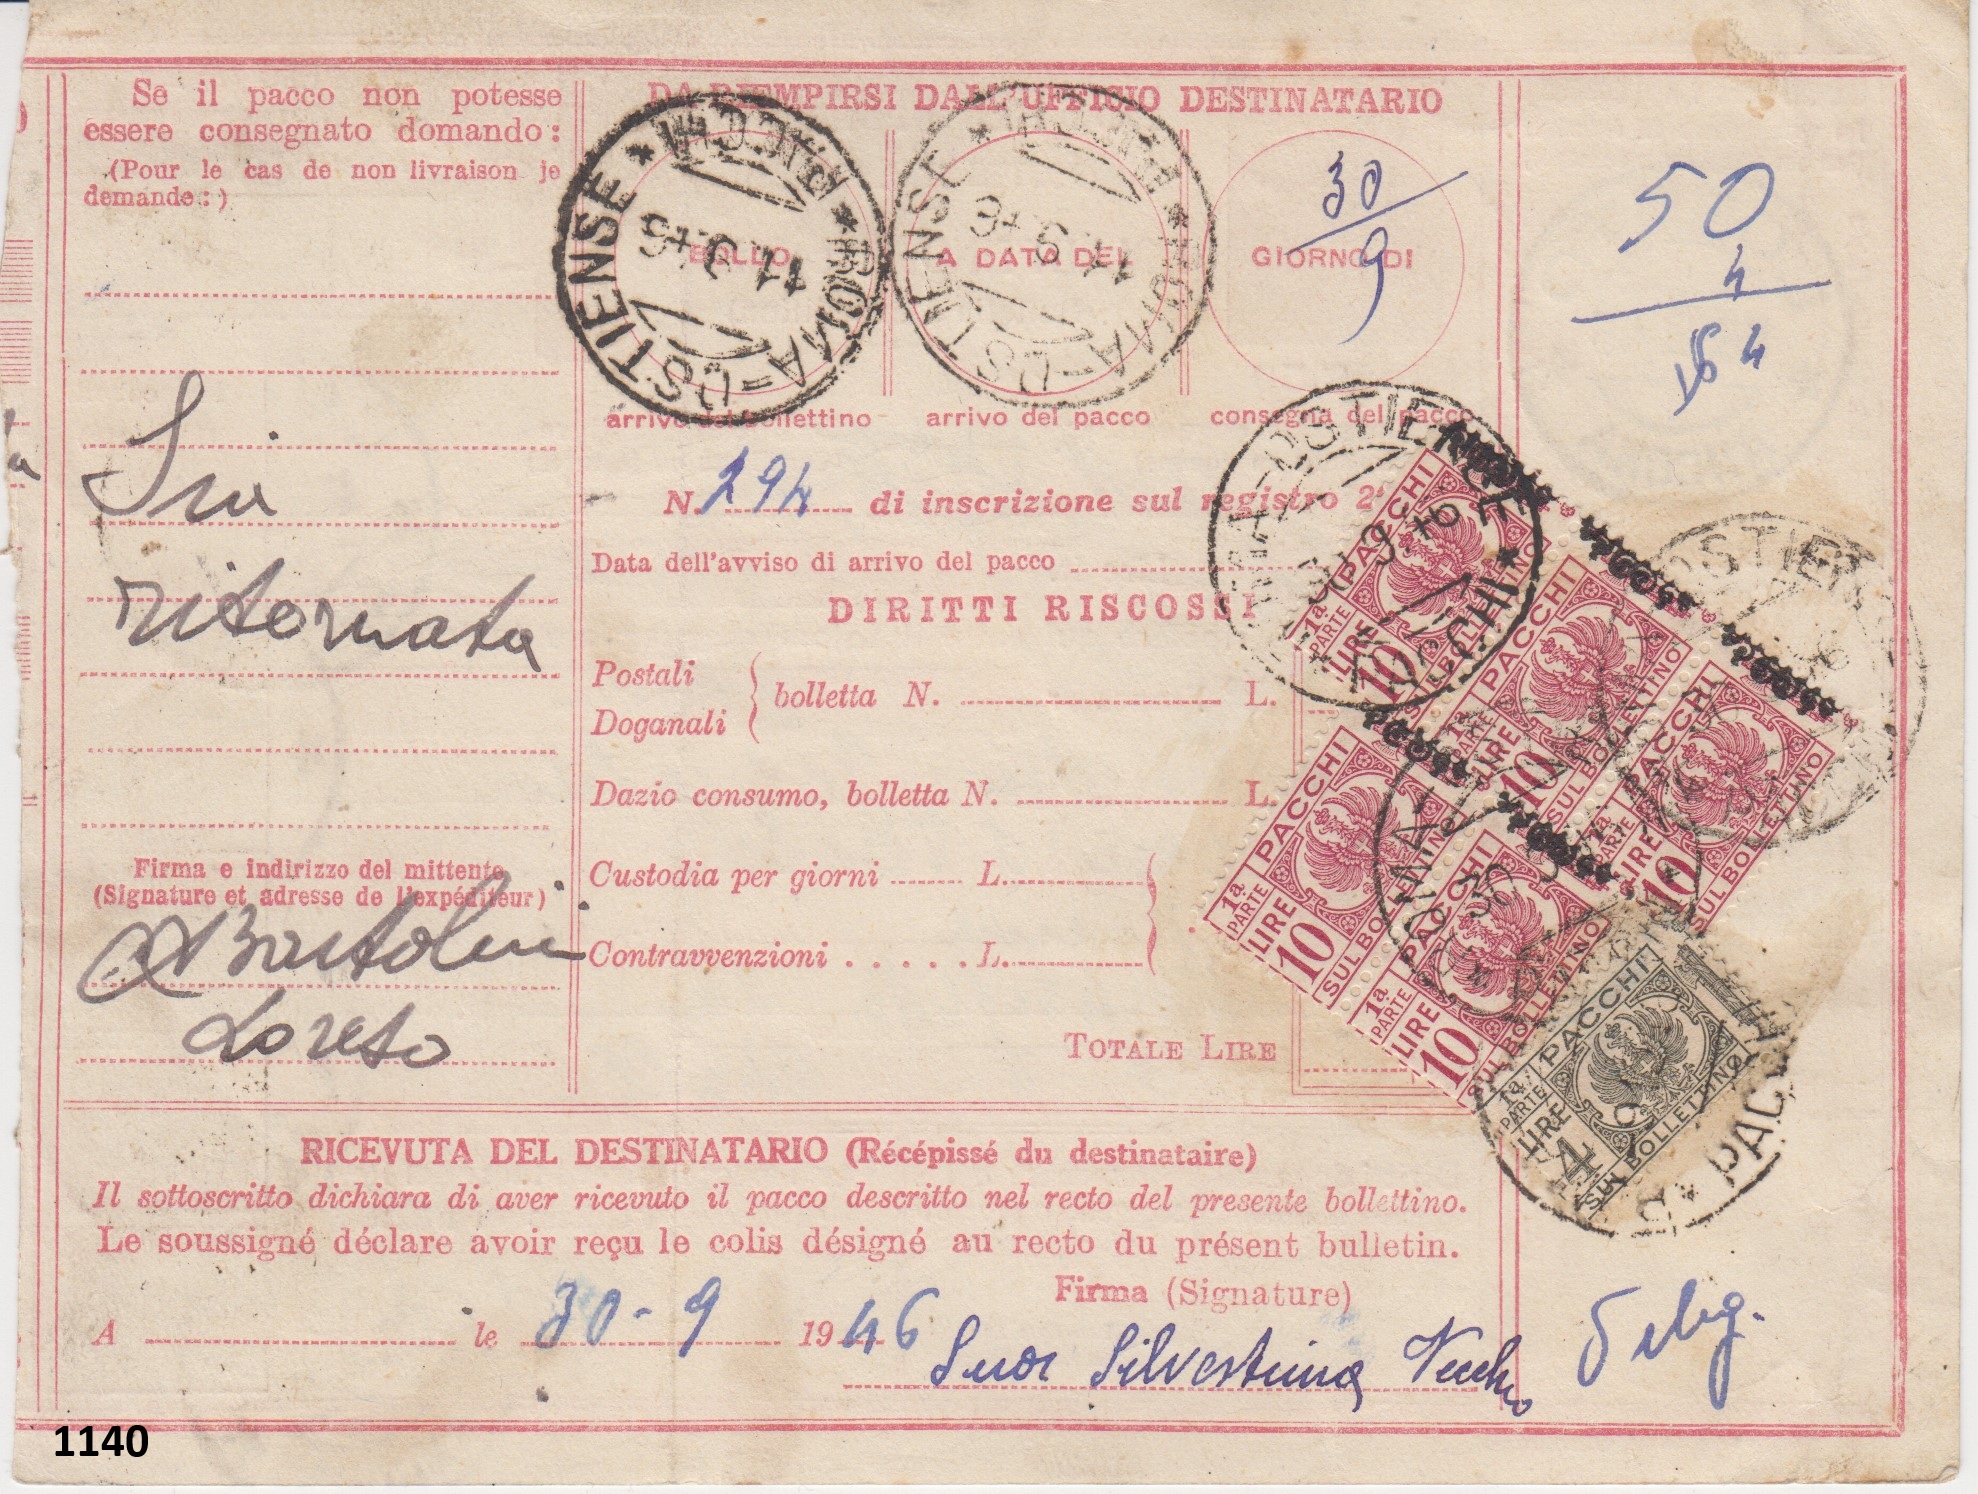 Se il pacco non potesse
essere consegnato domando:
(Pour le cas de non livraison je
demande:)
Sia
ritornata
Firma e indirizzo del mittente
(Signature et adresse de l'expéditeur)
Bartolini
Loreto
DA RIEMPIRSI DALL'UFFICIO DESTINATARIO
BOLLO
A DATA DEL
GIORNO DI
ROMA-OSTIENSE * PACCHI *
ROMA-OSTIENSE * PACCHI *
30/9
arrivo del bollettino
arrivo del pacco
consegna del pacco
N. 294 di inscrizione sul registro 2
Data dell'avviso di arrivo del pacco
DIRITTI RISCOSSI
Postali
Doganali
bolletta N. L.
Dazio consumo, bolletta N. L.
Custodia per giorni L.
Contravvenzioni ..... L.
TOTALE LIRE
50
4
54
PACCHI
1a PARTE
LIRE 10
SUL BOLLETTINO
PACCHI
1a PARTE
LIRE 10
SUL BOLLETTINO
PACCHI
1a PARTE
LIRE 10
SUL BOLLETTINO
PACCHI
1a PARTE
LIRE 10
SUL BOLLETTINO
PACCHI
1a PARTE
LIRE 10
SUL BOLLETTINO
PACCHI
1a PARTE
LIRE 4
SUL BOLLETTINO
RICEVUTA DEL DESTINATARIO (Récépissé du destinataire)
Il sottoscritto dichiara di aver ricevuto il pacco descritto nel recto del presente bollettino.
Le soussigné déclare avoir reçu le colis désigné au recto du présent bulletin.
Firma (Signature)
A le 30-9 1946
Suor Silvestrina Vecchio
1140